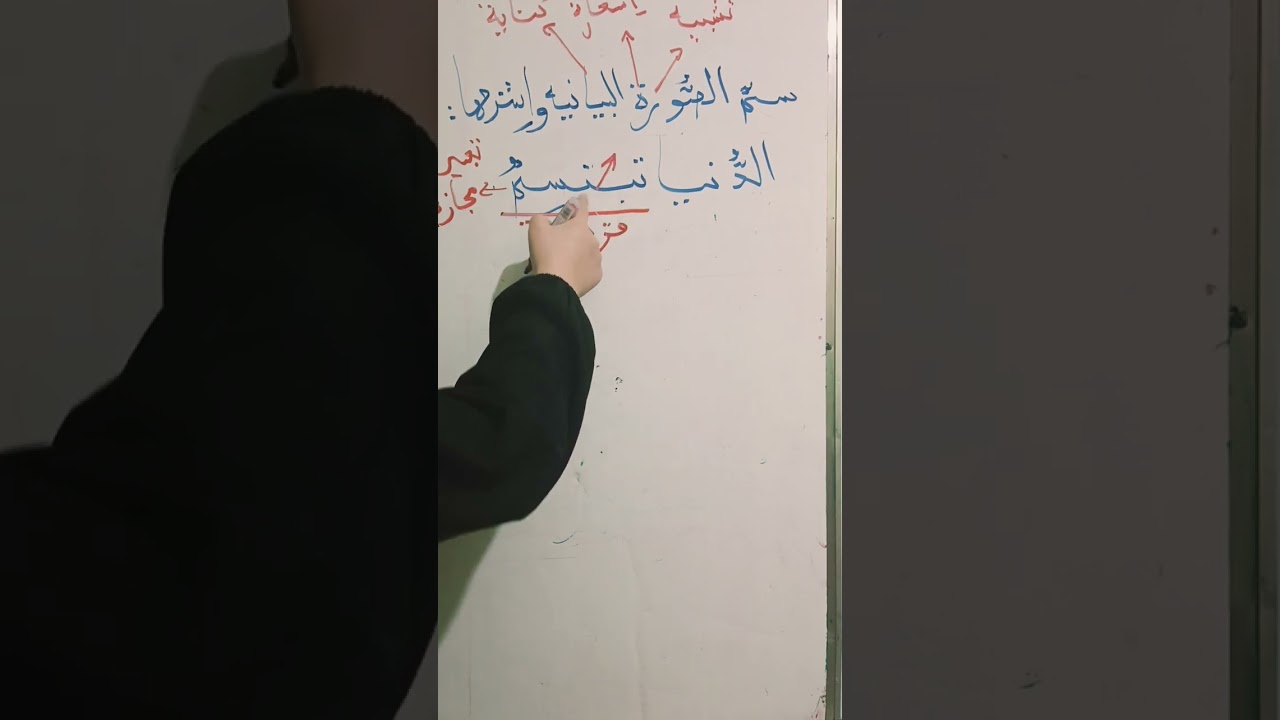 تشبيه استعارة كناية
سمّ الصّورة البيانيه واشرحها:
الدُّنيا تبتسمُ تعبير
مجازي